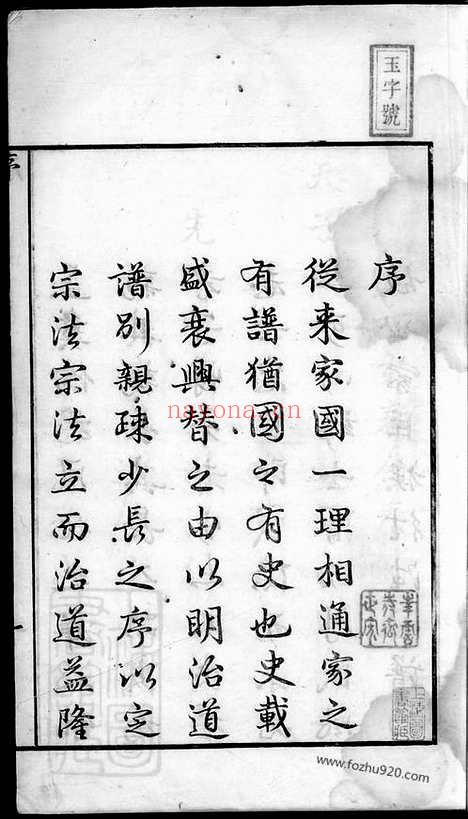 玉字號
序
從来家國一理相通家之
有譜猶國之有史也史載
盛衰興替之由以明治道
譜別親疎少長之序以定
宗法宗法立而治道益隆
nayona.cn
www.fozhu920.com